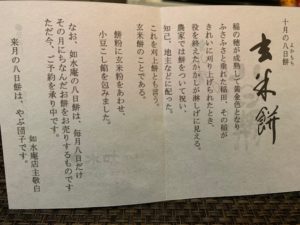 十月の八日餅
玄米餅
稲の穂が成熟して黄金色となり
ふさふさと垂れた稲田、その稲が
きれいに刈り上げられたとき、
役を終えたかかしが淋しげに見える。
農家では餅をついて祝い、
知己、地主などに配った。
これを刈上餅とも言う。
玄米餅のことである。
餅粉に玄米粉をあわせ、
小豆こし餡を包みました。
なお、如水庵の八日餅は、毎月八日だけ
その月にちなんだお餅をお売りするものです
ただ今、ご予約を承り中です。
如水庵店主敬白
来月の八日餅は、やぶ団子です。